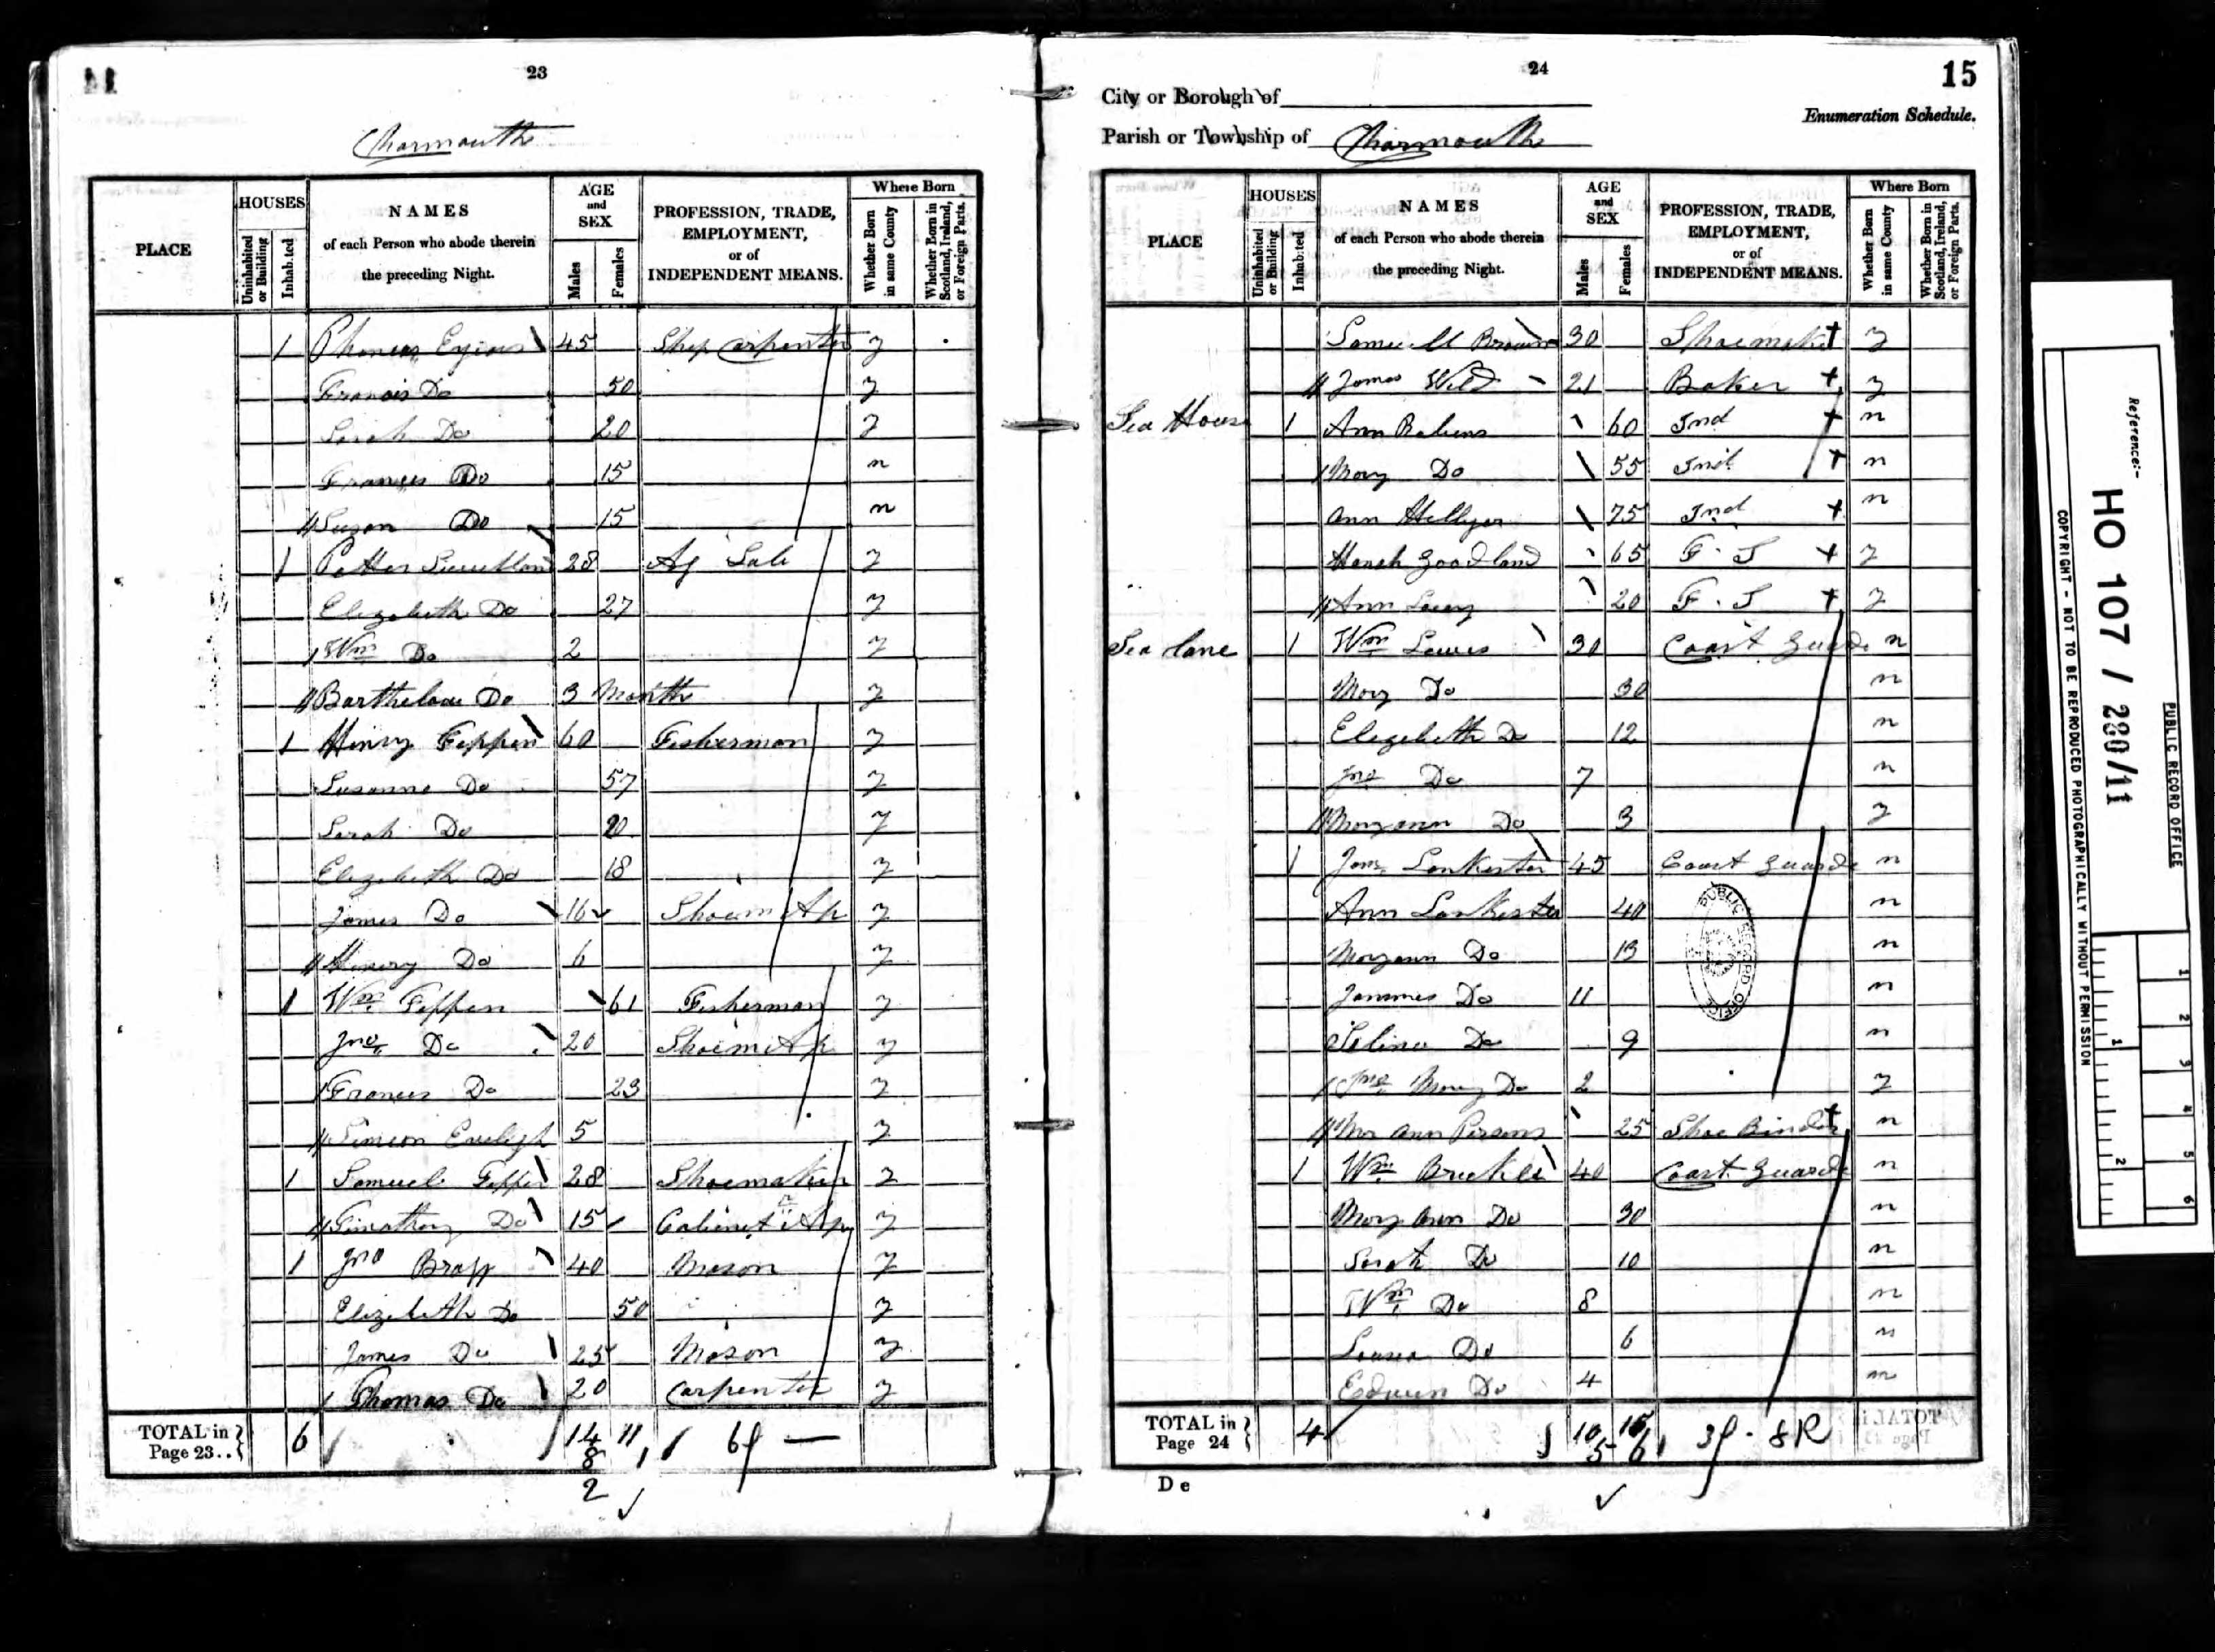 23
Charmouth
PLACE
HOUSES
Uninhabited or Building
Inhabited
NAMES
of each Person who abode therein
the preceding Night.
AGE
and
SEX
Males
Females
PROFESSION, TRADE,
EMPLOYMENT,
or of
INDEPENDENT MEANS.
Where Born
Whether Born in same County
Whether Born in Scotland, Ireland, or Foreign Parts.
1 45 Ship Carpenter y
Francis Do 50 y
Sarah Do 20 y
Frances Do 15 n
Suzan Do 15 n
1 28 Ag Lab y
Elizabeth Do 27 y
Wm Do 2 y
Do 3 Month y
1 Henry Feppen 60 Fisherman y
Susanna Do 57 y
Sarah Do 20 y
Elizabeth Do 18 y
James Do 16 Shoem Ap y
Henery Do 6 y
1 Wm Feppen 61 Fisherman y
Jno Do 20 Shoem Ap y
Frances Do 23 y
Simeon Eveleigh 5 y
1 Samuel Feppen 28 Shoemaker y
Do 15 Cabinet Ap y
1 Jno 40 Mason y
Elizabeth Do 50 y
James Do 25 Mason y
Thomas Do 20 Carpenter y
TOTAL in Page 23.. 6 14 11 6f —
8 1
2
24
15
City or Borough of
Enumeration Schedule.
Parish or Township of Charmouth
PLACE
HOUSES
Uninhabited or Building
Inhabited
NAMES
of each Person who abode therein
the preceding Night.
AGE
and
SEX
Males
Females
PROFESSION, TRADE,
EMPLOYMENT,
or of
INDEPENDENT MEANS.
Where Born
Whether Born in same County
Whether Born in Scotland, Ireland, or Foreign Parts.
Samuell Brown 30 Shoemaker y
James Wild 21 Baker y
Sea House 1 Ann 60 Ind n
Mary Do 55 Ind n
Ann Hellyer 75 Ind n
Hanah Goodland 65 F. S y
Ann 20 F. S y
Sea lane 1 Wm Lewis 30 Coast Guarde n
Mary Do 30 n
Elezebeth Do 12 n
Jno Do 7 n
Maryann Do 3 y
1 Lenkester 45 Coast Guarde n
Ann Lenkester 40 n
Maryann Do 13 n
Jammes Do 11 n
Selina Do 9 n
Do 2 y
Ann Persons 25 Shoe Binder n
1 Wm 40 Coast Guarde n
Mary Ann Do 30 n
Sarah Do 10 n
Wm Do 8 n
Louisa Do 6 n
Edwin Do 4 n
TOTAL in Page 24 4 10 15 3f . 8R
5 6
De
PUBLIC RECORD OFFICE
PUBLIC RECORD OFFICE
Reference:-
HO 107 / 280/11
COPYRIGHT - NOT TO BE REPRODUCED PHOTOGRAPHICALLY WITHOUT PERMISSION
1 2
1 2 3 4 5 6